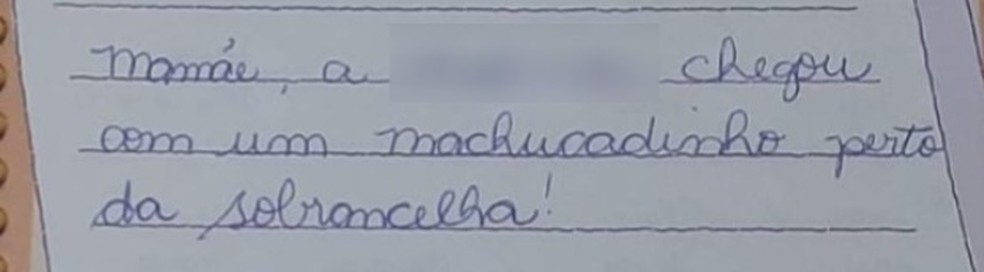 Mamãe, a chegou
com um machucadinho perto
da sobrancelha!